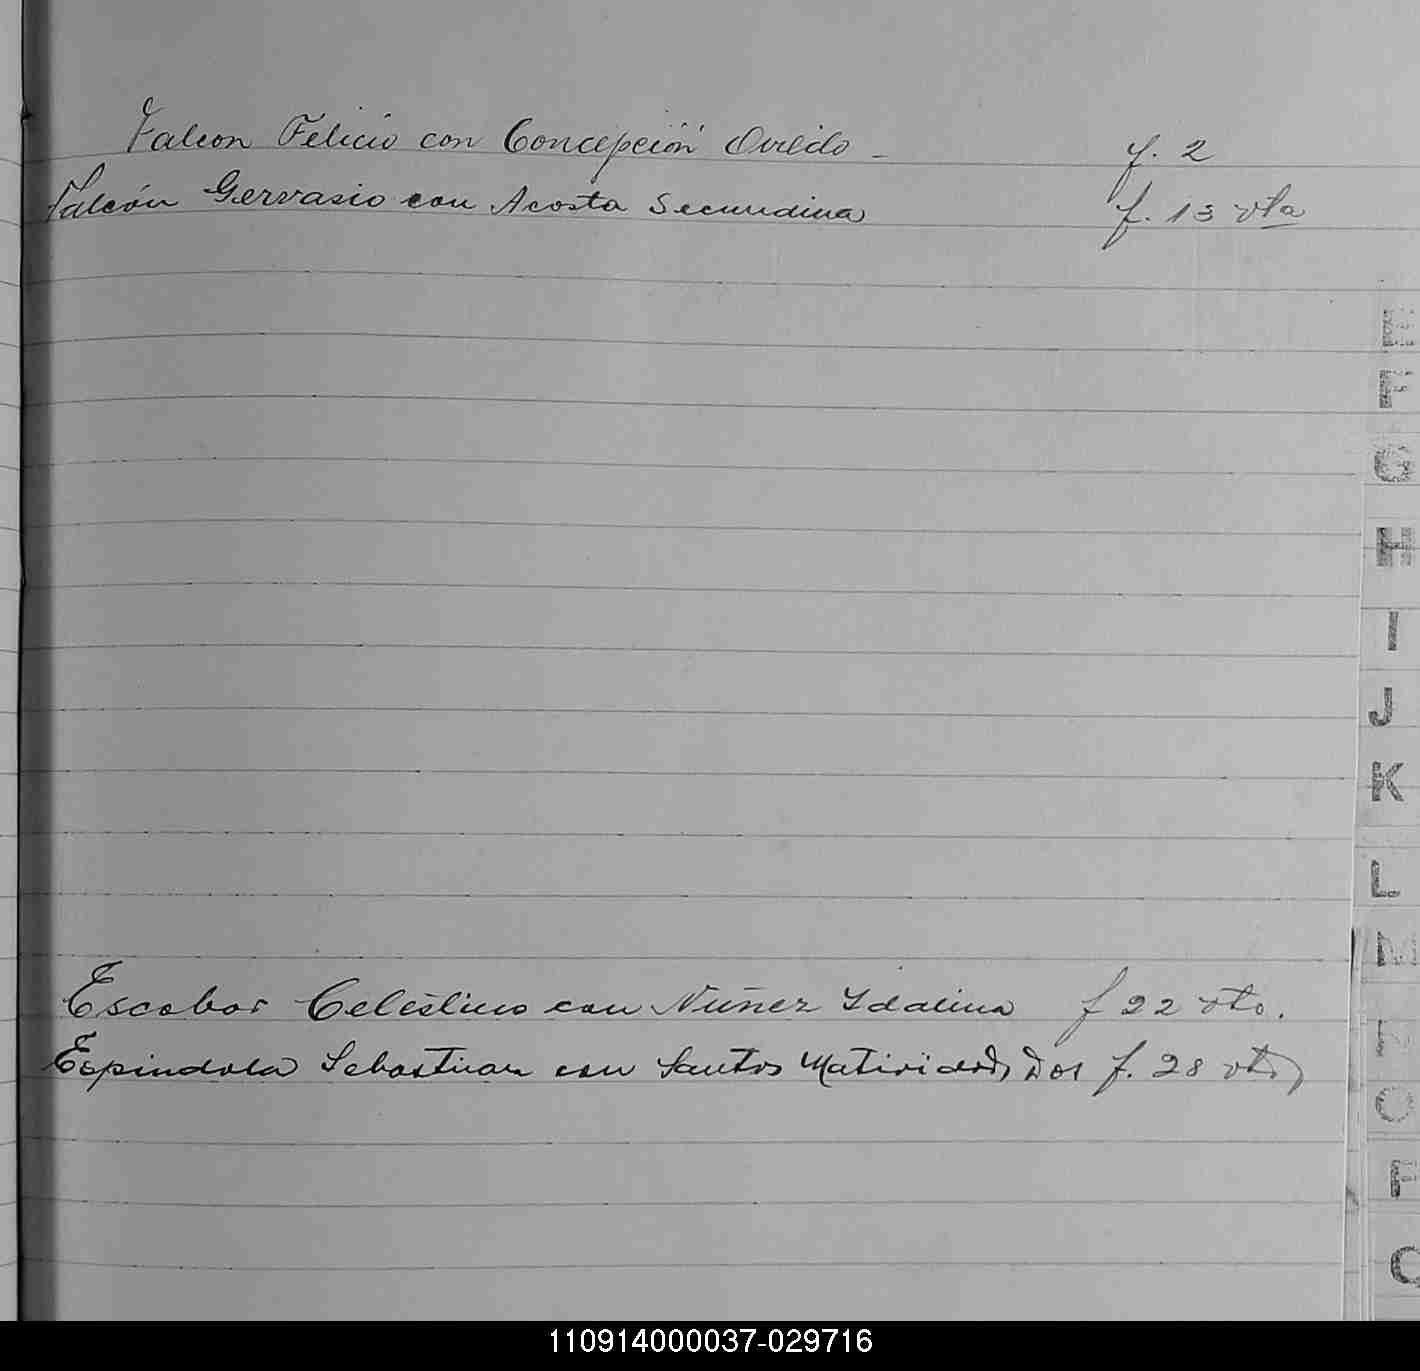 Falcon Felicio con Concepción Oviedo - f. 2
Falcón Gervasio con Acosta Secundina f. 13 vta
Escobar Celestino con Nuñez Idalina f 22 vto.
Espindola Sebastian con Santos Natividad, Dos f. 28 vto,
E
F
G
H
I
J
K
L
M
N
O
P
Q
110914000037-029716